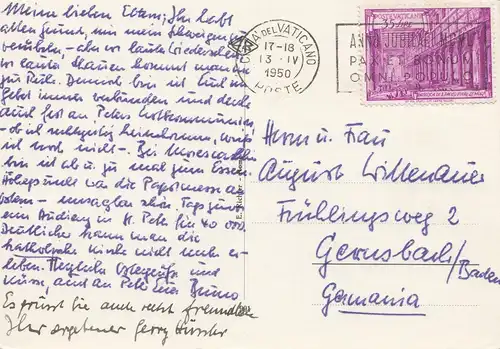 Meine lieben Eltern; Ihr habt
allen Grund, mir mein Schweigen zu
verübeln – aber vor lauter Wiedersehen
vor lauter Schauen kommt man nicht
zur Ruhe. Dennoch bin ich Euch im
Gebet immer verbunden und denke
auch fest an Peters Erstkommunion
– ob ich rechtzeitig heimkomme, weiss
ich noch nicht –. Bei
bin ich ab u. zu mal zum Essen
war die Papstmesse in
– unsagbar schön. Tags zuvor
eine Audienz in St. Peter für 40 000.
Deutlicher kann man die
katholische Kirche nicht mehr er-
leben. Herzliche und
Küsse, auch an Pete Euer Bruno
Es grüsst Sie auch recht freundlich
Ihr ergebener Georg
CITTÀ DEL VATICANO
17-18
13 · IV
1950
POSTE
ANNO JUBILAEI
PAX ET BONUM
E. Richter
Herrn u. Frau
August Wittenauer
Frühlingsweg 2
Gernsbach/Baden
Germania